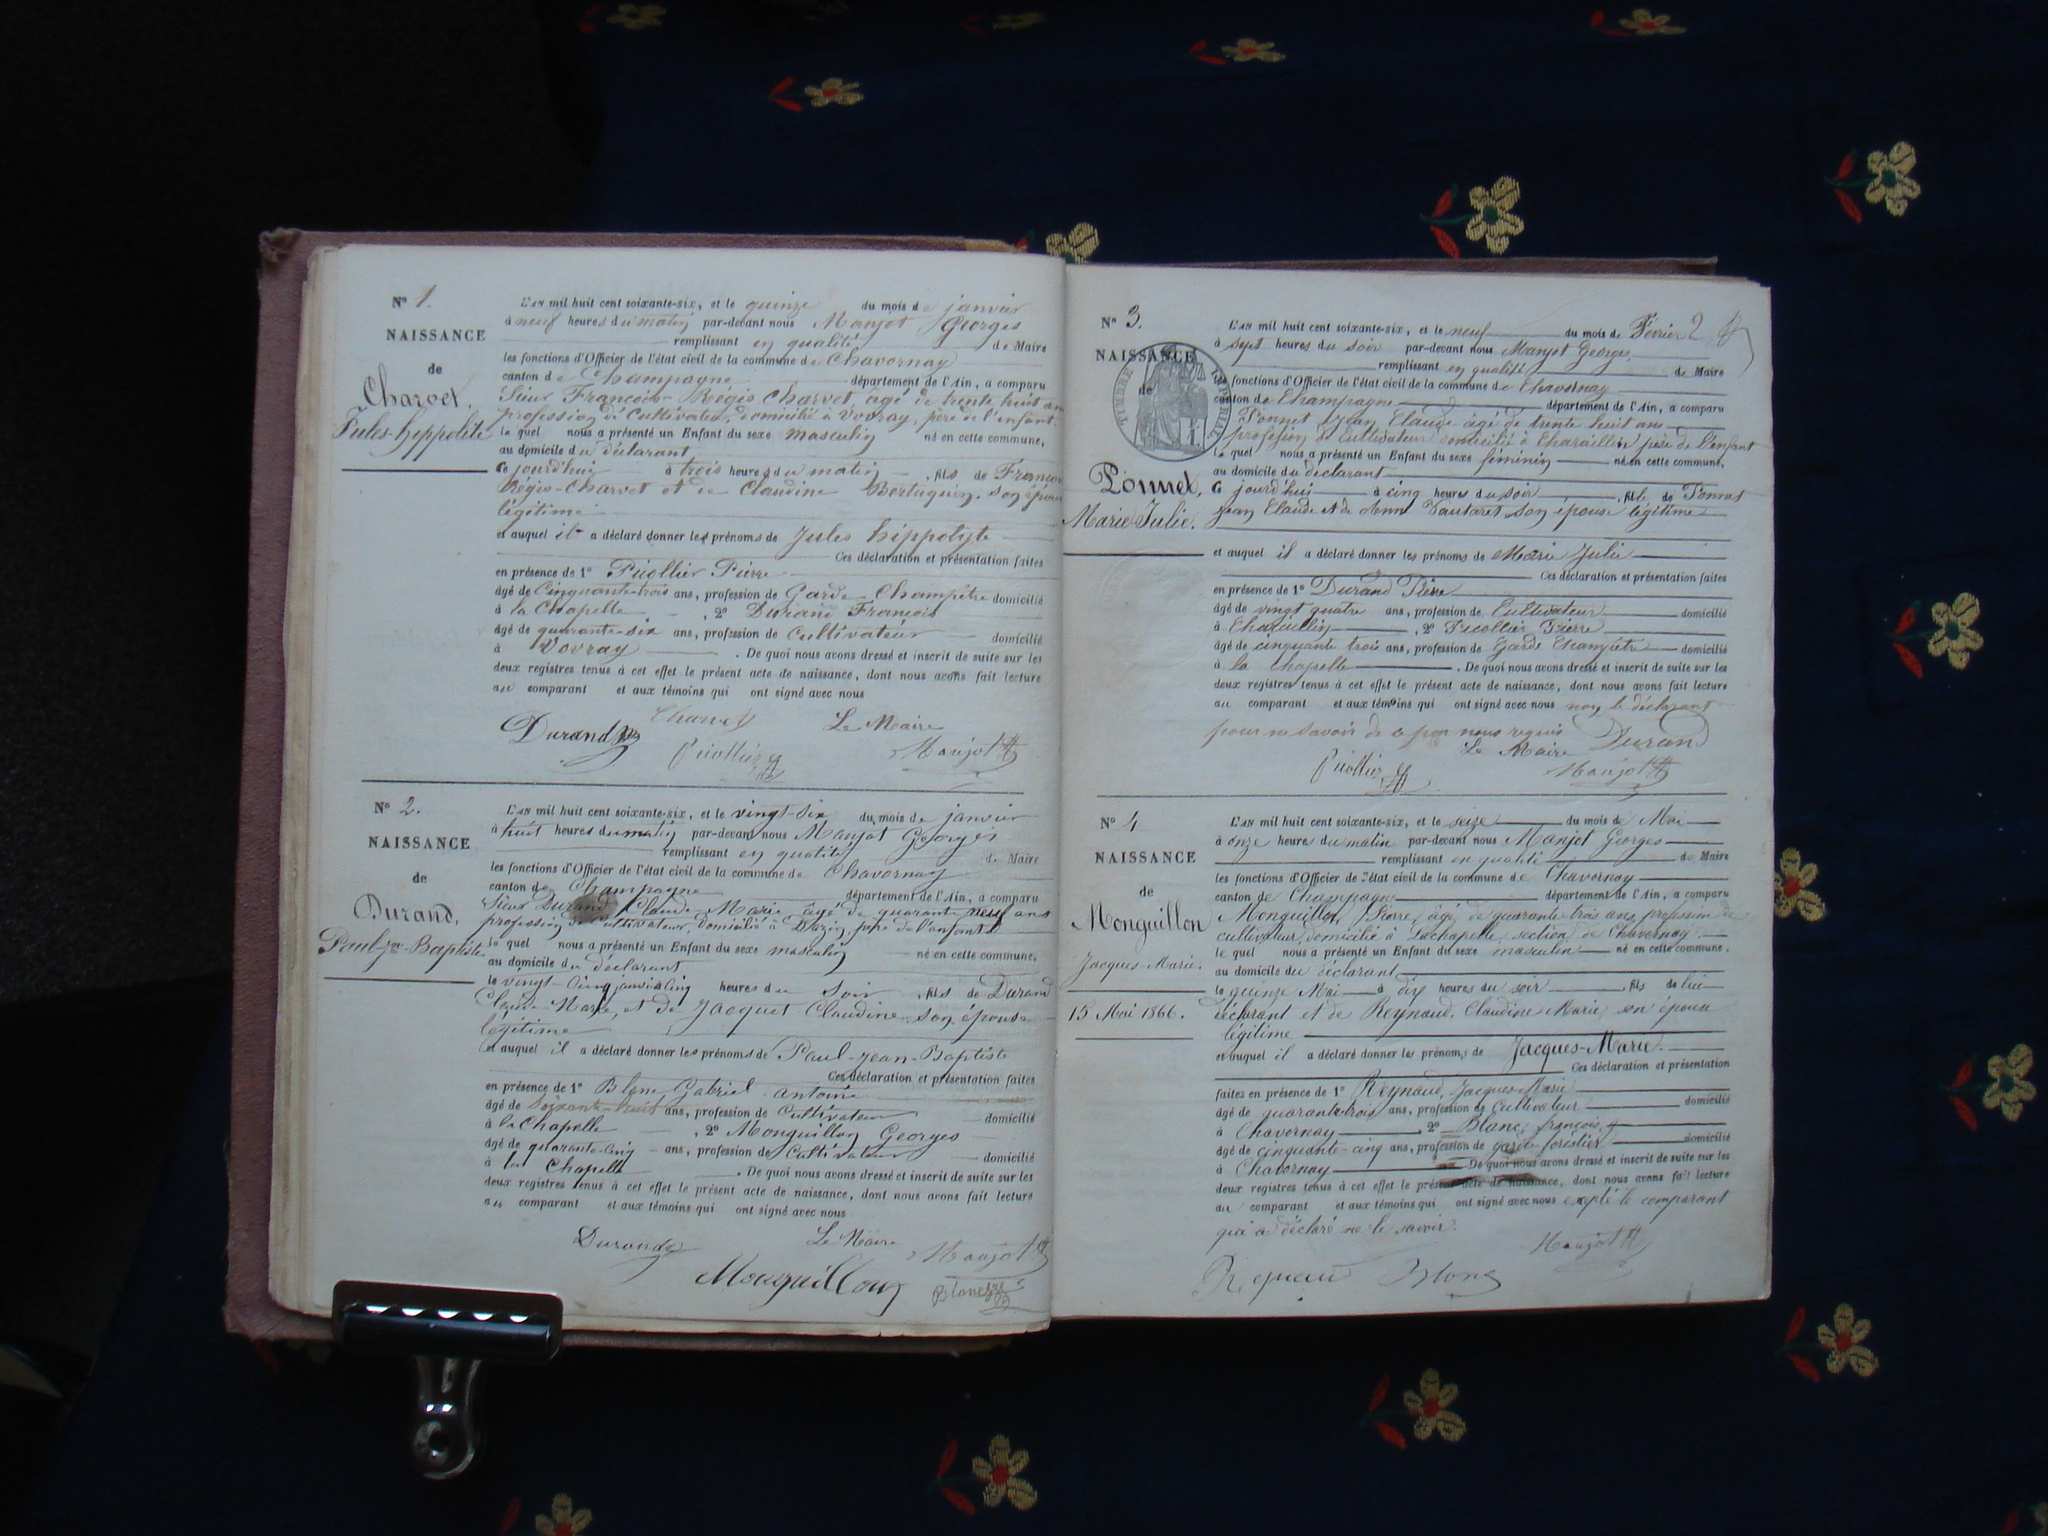 N° 1.
NAISSANCE
de
Charvet,
Jules-hippolite
L'AN mil huit cent soixante-six, et le quinze du mois de janvier
à neuf heures du matin par-devant nous Manjot Georges
remplissant en qualité de Maire
les fonctions d'Officier de l'état civil de la commune de Chavornay
canton de Champagne département de l'Ain, a comparu
Sieur François-Régis Charvet âgé de trente huit ans
profession de Cultivateur, domicilié à Vovray, père de l'enfant
le quel nous a présenté un Enfant du sexe masculin né en cette commune,
au domicile du déclarant
ce jourd'hui à trois heures du matin, fils de François
Régis-Charvet et de Claudine son épouse
légitime
et auquel il a déclaré donner les prénoms de Jules hippolyte
Ces déclaration et présentation faites
en présence de 1° Picollier Pierre
âgé de Cinquante-trois ans, profession de Garde-Champêtre domicilié
à la Chapelle, 2° Durand François
âgé de quarante-six ans, profession de Cultivateur domicilié
à Vovray. De quoi nous avons dressé et inscrit de suite sur les
deux registres tenus à cet effet le présent acte de naissance, dont nous avons fait lecture
au comparant et aux témoins qui ont signé avec nous
Charvet Le Maire
Durand
Picollier Manjot
N° 2.
NAISSANCE
de
Durand,
Paul-Jn-Baptiste
L'AN mil huit cent soixante-six, et le vingt-six du mois de janvier
à huit heures du matin par-devant nous Manjot Georges
remplissant en qualité de Maire
les fonctions d'Officier de l'état civil de la commune de Chavornay
canton de Champagne département de l'Ain, a comparu
Sieur Durand Claude-Marie âgé de quarante neuf ans
profession de cultivateur, domicilié à père de l'enfant
le quel nous a présenté un Enfant du sexe masculin né en cette commune,
au domicile du déclarant
le vingt-cinq janvier à cinq heures du soir, fils de Durand
Claude-Marie, et de Jacquet Claudine son épouse
légitime
et auquel il a déclaré donner les prénoms de Paul-Jean-Baptiste
Ces déclaration et présentation faites
en présence de 1° Blanc Gabriel antoine
âgé de Soixante-huit ans, profession de Cultivateur domicilié
à la Chapelle, 2° Monguillon Georges
âgé de quarante-cinq ans, profession de Cultivateur domicilié
à la Chapelle. De quoi nous avons dressé et inscrit de suite sur les
deux registres tenus à cet effet le présent acte de naissance, dont nous avons fait lecture
au comparant et aux témoins qui ont signé avec nous
Durand Le Maire Manjot
Monguillon Blanc
2
N° 3.
NAISSANCE
de
Ponnet,
Marie Julie.
TIMBRE IMPERIAL
L'AN mil huit cent soixante-six, et le neuf du mois de Février
à sept heures du soir par-devant nous Manjot Georges
remplissant en qualité de Maire
les fonctions d'Officier de l'état civil de la commune de Chavornay
canton de Champagne département de l'Ain, a comparu
Ponnet Jean Claude âgé de trente huit ans
profession de Cultivateur domicilié à Charaillin père de l'enfant
le quel nous a présenté un Enfant du sexe féminin né en cette commune,
au domicile du déclarant
ce jourd'hui à cinq heures du soir, fille de Ponnet
Jean Claude et de son épouse légitime
et auquel il a déclaré donner les prénoms de Marie Julie
Ces déclaration et présentation faites
en présence de 1° Durand Pierre
âgé de vingt quatre ans, profession de Cultivateur domicilié
à Charaillin, 2° Picollier Pierre
âgé de cinquante trois ans, profession de Garde Champêtre domicilié
à la Chapelle. De quoi nous avons dressé et inscrit de suite sur les
deux registres tenus à cet effet le présent acte de naissance, dont nous avons fait lecture
au comparant et aux témoins qui ont signé avec nous non le déclarant
pour ne savoir de ce par nous requis Durand
Le Maire
Picollier Manjot
N° 4
NAISSANCE
de
Monguillon
Jacques-Marie.
15 Mai 1866.
L'AN mil huit cent soixante-six, et le seize du mois de Mai
à onze heures du matin par-devant nous Manjot Georges
remplissant en qualité de Maire
les fonctions d'Officier de l'état civil de la commune de Chavornay
canton de Champagne département de l'Ain, a comparu
Monguillon, Pierre, âgé de quarante trois ans, profession de
cultivateur, domicilié à Lachapelle, section de Chavornay
le quel nous a présenté un Enfant du sexe masculin né en cette commune,
au domicile du déclarant
le quinze Mai à dix heures du soir, fils de lui
déclarant et de Reynaud, Claudine Marie, son épouse
légitime
et auquel il a déclaré donner les prénoms de Jacques-Marie
Ces déclaration et présentation
faites en présence de 1° Reynaud, Jacques-Marie
âgé de quarante-trois ans, profession de cultivateur domicilié
à Chavornay, 2° Blanc, françois,
âgé de cinquante-cinq ans, profession de garde-forestier domicilié
à Chavornay De quoi nous avons dressé et inscrit de suite sur les
deux registres tenus à cet effet le présent acte de naissance, dont nous avons fait lecture
au comparant et aux témoins qui ont signé avec nous excepté le comparant
qui a déclaré ne le savoir.
Manjot
Blanc